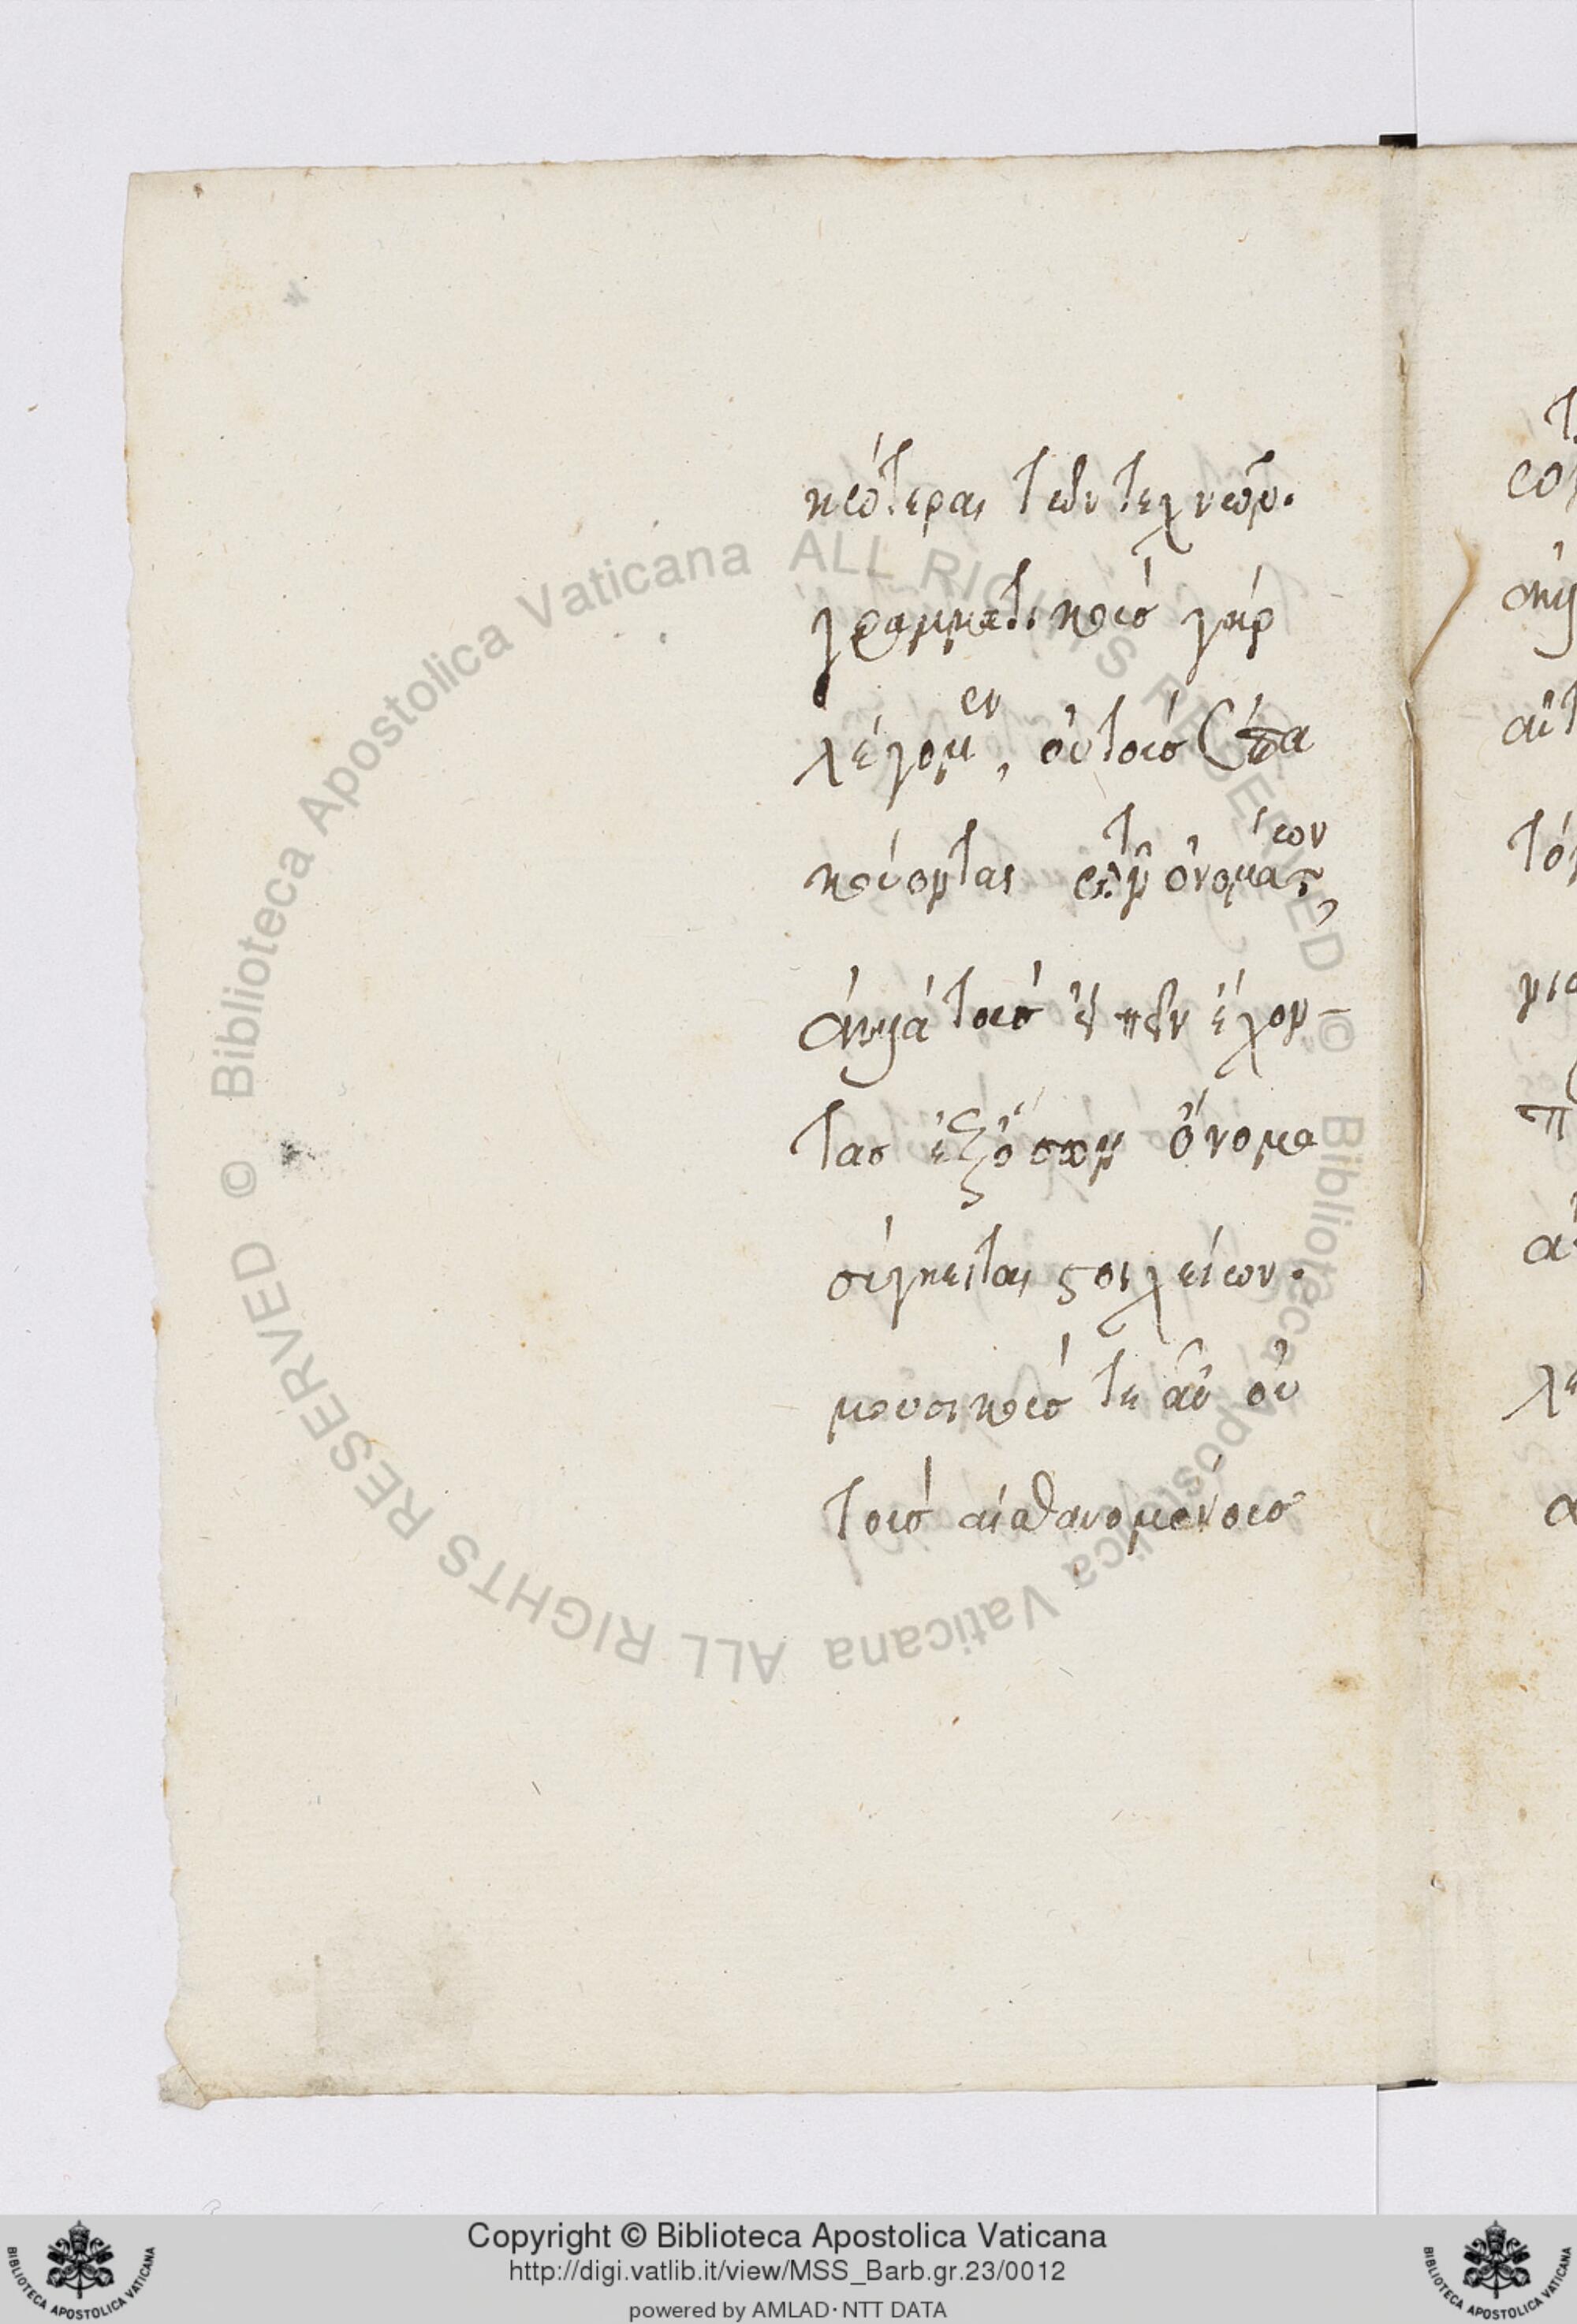 κώτεραι τῶν τεχνῶν.
γραμματικοὺσ γάρ
λέγομεν, οὐ τοὺσ ἐπα
κούοντας τῶν ὀνομάτων,
ἀλλὰ τοὺσ εἰπεῖν ἔχον-
τασ ἐξ ὅσων ὄνομα
σύγκειται στοιχείων.
μουσικοὺσ τε αὖ οὐ
τοὺσ αἰσθανομένουσ
Biblioteca Apostolica Vaticana ALL RIGHTS RESERVED ©
Biblioteca Apostolica Vaticana ALL RIGHTS RESERVED ©
Copyright © Biblioteca Apostolica Vaticana
http://digi.vatlib.it/view/MSS_Barb.gr.23/0012
powered by AMLAD·NTT DATA
BIBLIOTECA APOSTOLICA VATICANA
BIBLIOTECA APOSTOLICA VATICANA